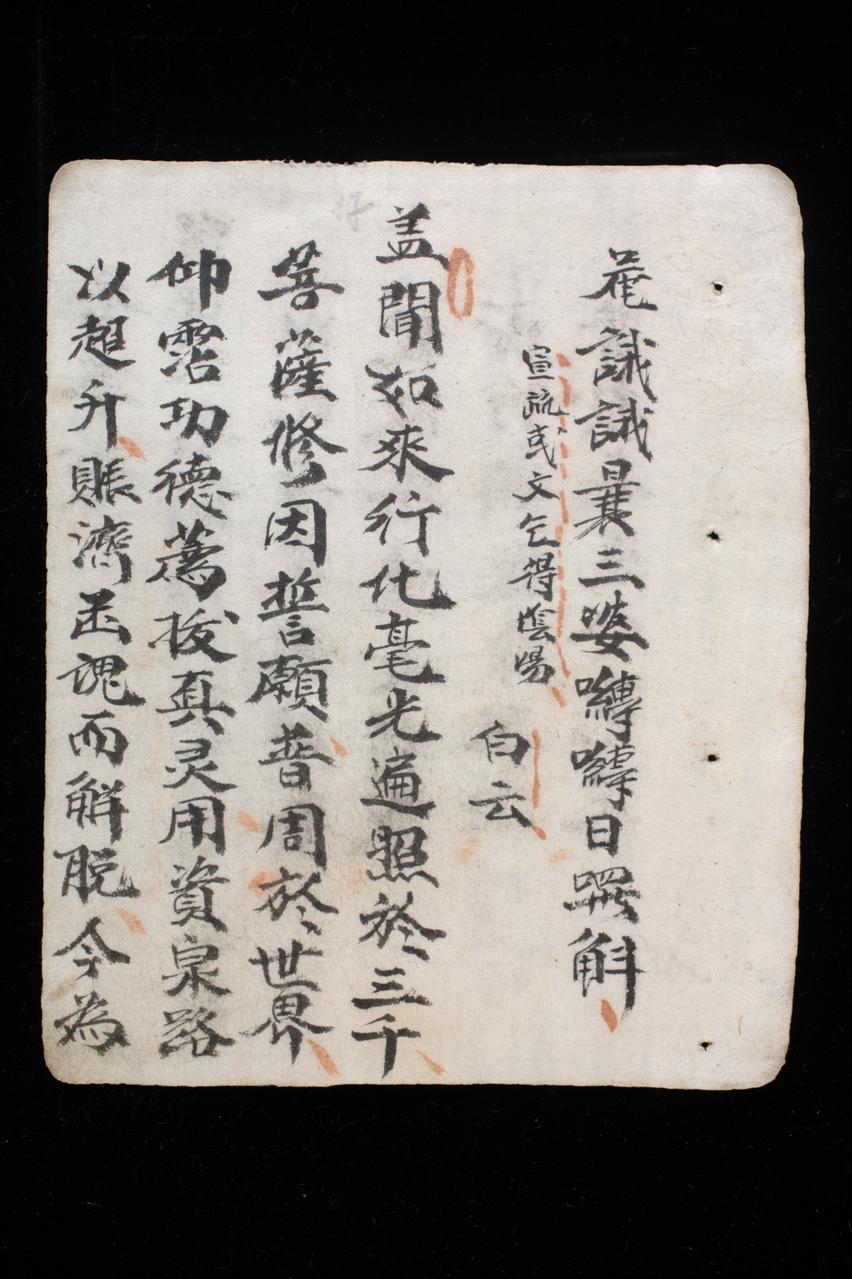 菴誐誐曩三婆嚩嚩日囉斛
宣疏或文乞得陰陽 白云
盖聞如來行化毫光遍照於三千
菩薩修因誓願普周於世界
仰霑功德薦拔真灵用資泉路
以超升賑濟魂而觧脱今為